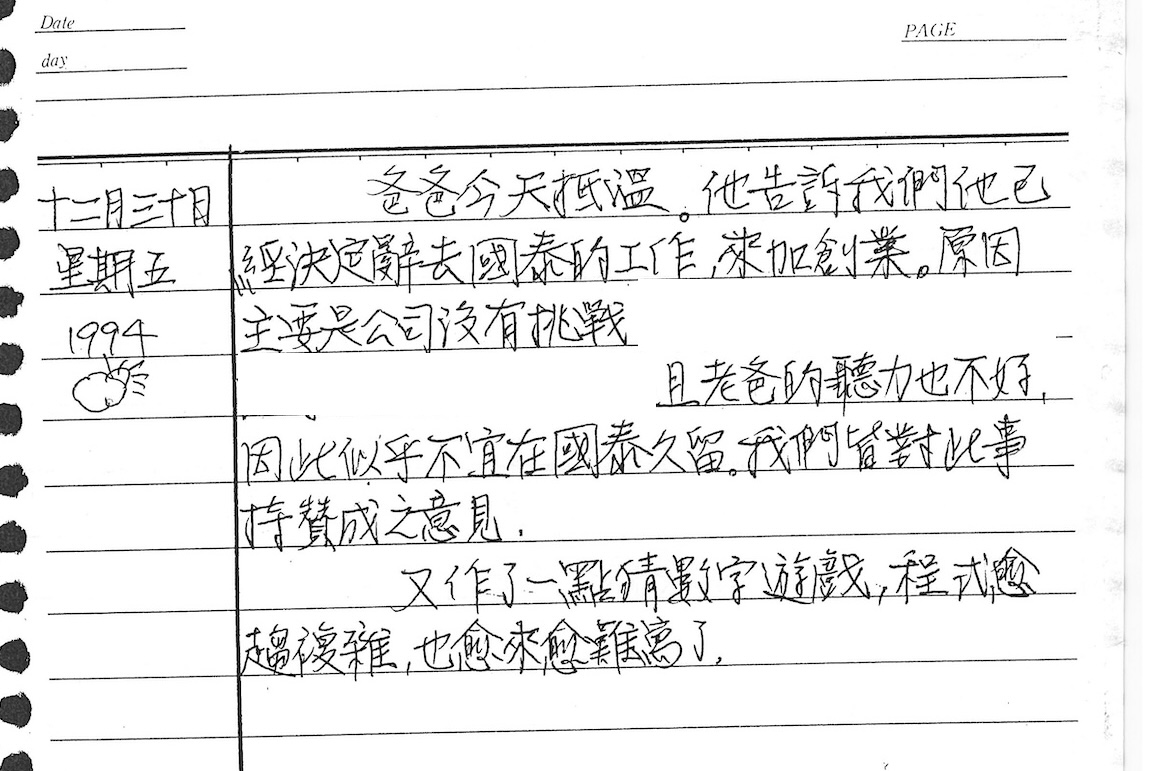 Date
day
PAGE
十二月三十日
星期五
1994
爸爸今天抵溫。他告訴我們他已
經決定辭去國泰的工作,來加創業。原因
主要是公司沒有挑戰
且老爸的聽力也不好,
因此似乎不宜在國泰久留。我們皆對此事
持贊成之意見.
又作了一點猜數字遊戲,程式愈
趨複雜,也愈來愈難寫了.